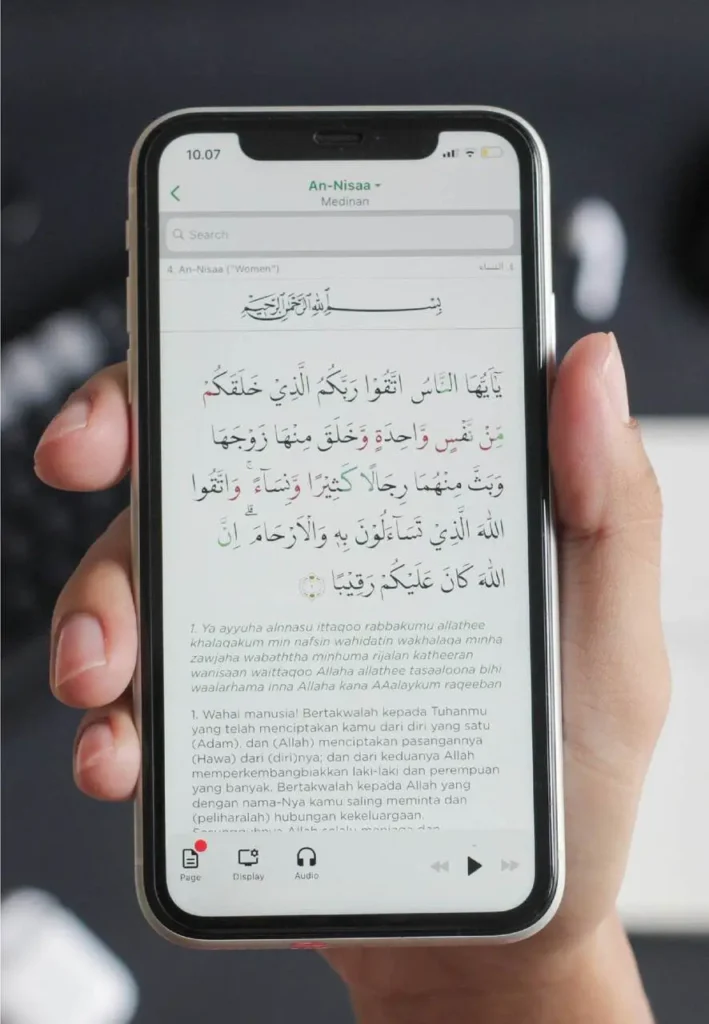 10.07
An-Nisaa
Medinan
Search
4. An-Nisaa ("Women")
٤. النساء
بِسْمِ اللهِ الرَّحْمٰنِ الرَّحِيْمِ
يٰٓاَيُّهَا النَّاسُ اتَّقُوْا رَبَّكُمُ الَّذِيْ خَلَقَكُمْ
مِّنْ نَّفْسٍ وَّاحِدَةٍ وَّخَلَقَ مِنْهَا زَوْجَهَا
وَبَثَّ مِنْهُمَا رِجَالًا كَثِيْرًا وَّنِسَاۤءً ۚ وَاتَّقُوا
اللهَ الَّذِيْ تَسَاۤءَلُوْنَ بِهٖ وَالْاَرْحَامَ ۗ اِنَّ
اللهَ كَانَ عَلَيْكُمْ رَقِيْبًا ١
1. Ya ayyuha alnnasu ittaqoo rabbakumu allathee
khalaqakum min nafsin wahidatin wakhalaqa minha
zawjaha wabaththa minhuma rijalan katheeran
wanisaan waittaqoo Allaha allathee tasaaloona bihi
waalarhama inna Allaha kana AAalaykum raqeeban
1. Wahai manusia! Bertakwalah kepada Tuhanmu
yang telah menciptakan kamu dari diri yang satu
(Adam), dan (Allah) menciptakan pasangannya
(Hawa) dari (diri)nya; dan dari keduanya Allah
memperkembangbiakkan laki-laki dan perempuan
yang banyak. Bertakwalah kepada Allah yang
dengan nama-Nya kamu saling meminta dan
(peliharalah) hubungan kekeluargaan.
Sesungguhnya Allah selalu menjaga dan
Page
Display
Audio